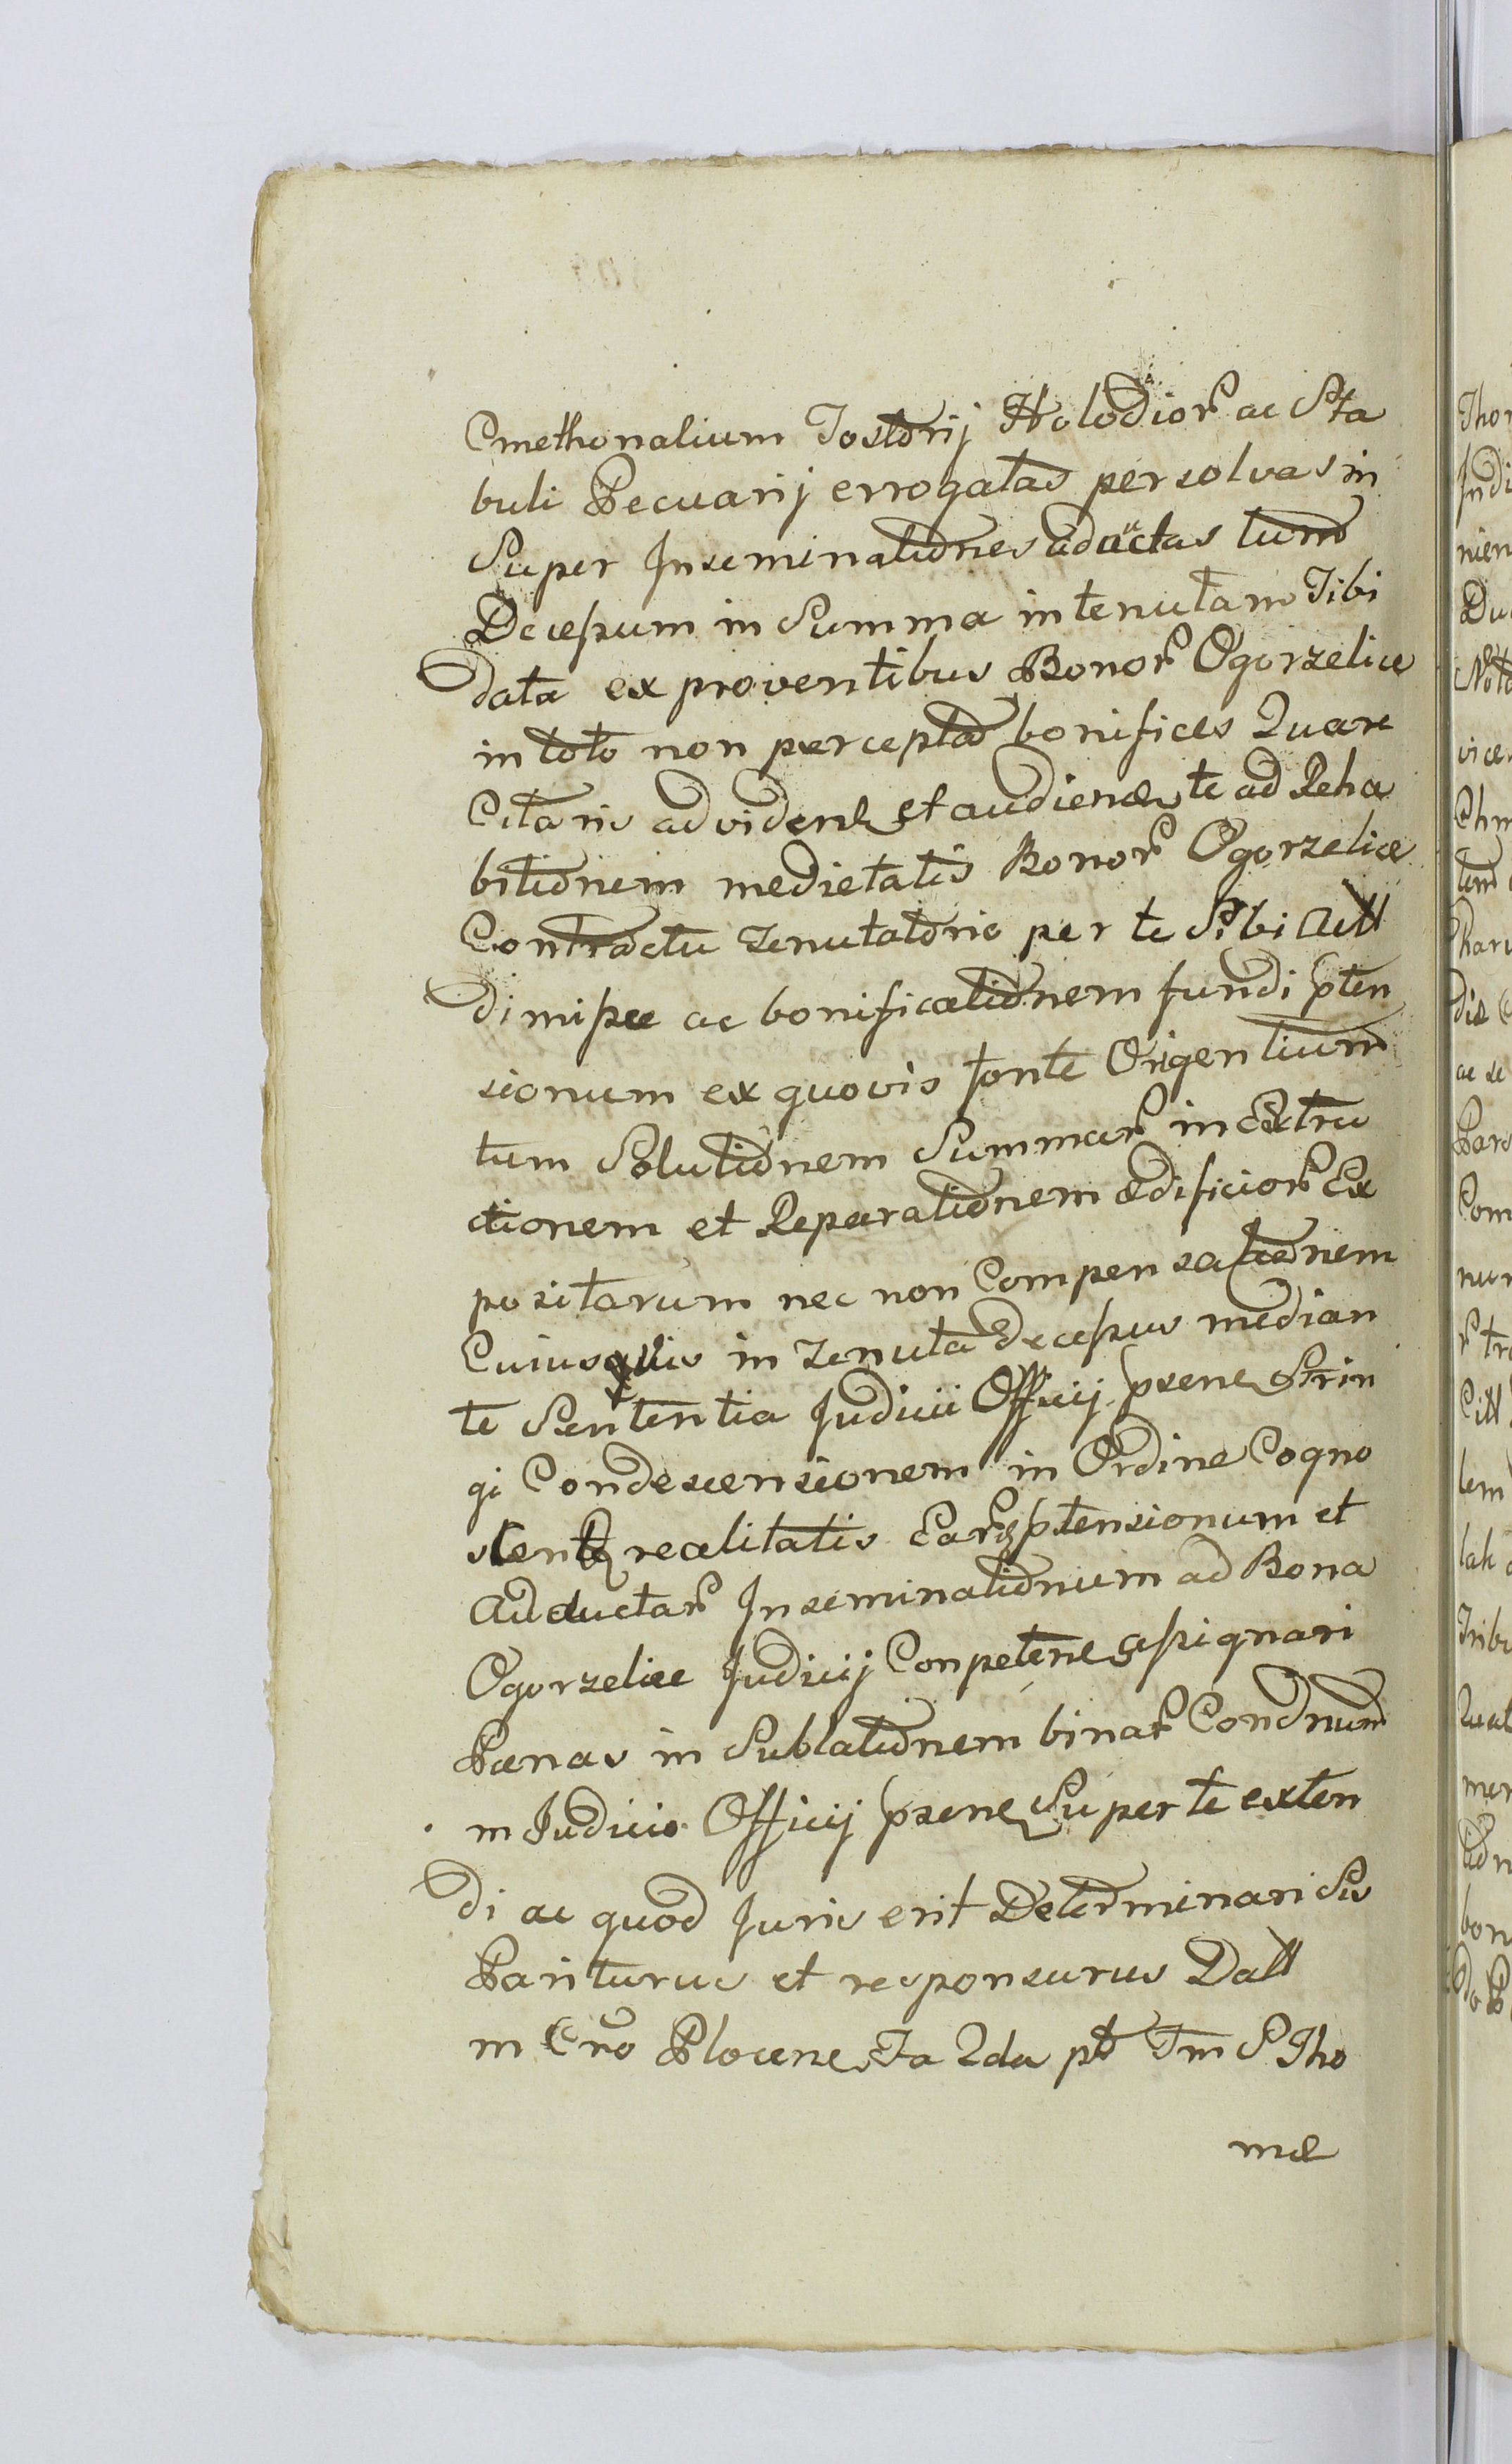 Cmethonalium Tostorij Holodior ac Sta
buli Pecuarij errogatas persolvas in
Super Inseminationes adauctas tum
Decessum in Summa in tenutam Tibi
data ex proventibus Bonor Ogorzelice
in toto non perceptas bonifices Quare
Citaris ad videndz et audiendz te ad Reha
bitionem medietatis Bonor Ogorzelice
Contractu Tenutatorio per te Sibi Actt
dimissae ac bonificationem fundi pten
sionum ex quovis fonte Origentium
tum Solutionem Summar in Extru
ctionem et Reparationem Ædificior Ex
positarum nec non Compensationem
Cuiusqvis in Tenuta Decessus median
te Sententia Judicii Officij psenz Strin
gi Condescensionem in Ordine Cogno
scendz realitatis Earz ptensionum et
Auductar Inseminationum ad Bona
Ogorzelice Judicij Conpetenz assignari
Pænas in Sublationem binar Condnum
in Judicio Officij psenz Super te exten
di ac quod Juris erit Determinari Sis
Pariturus et responsurus Datt
in Cro Plocenz Fa 2da pt Tm S Tho
mæ